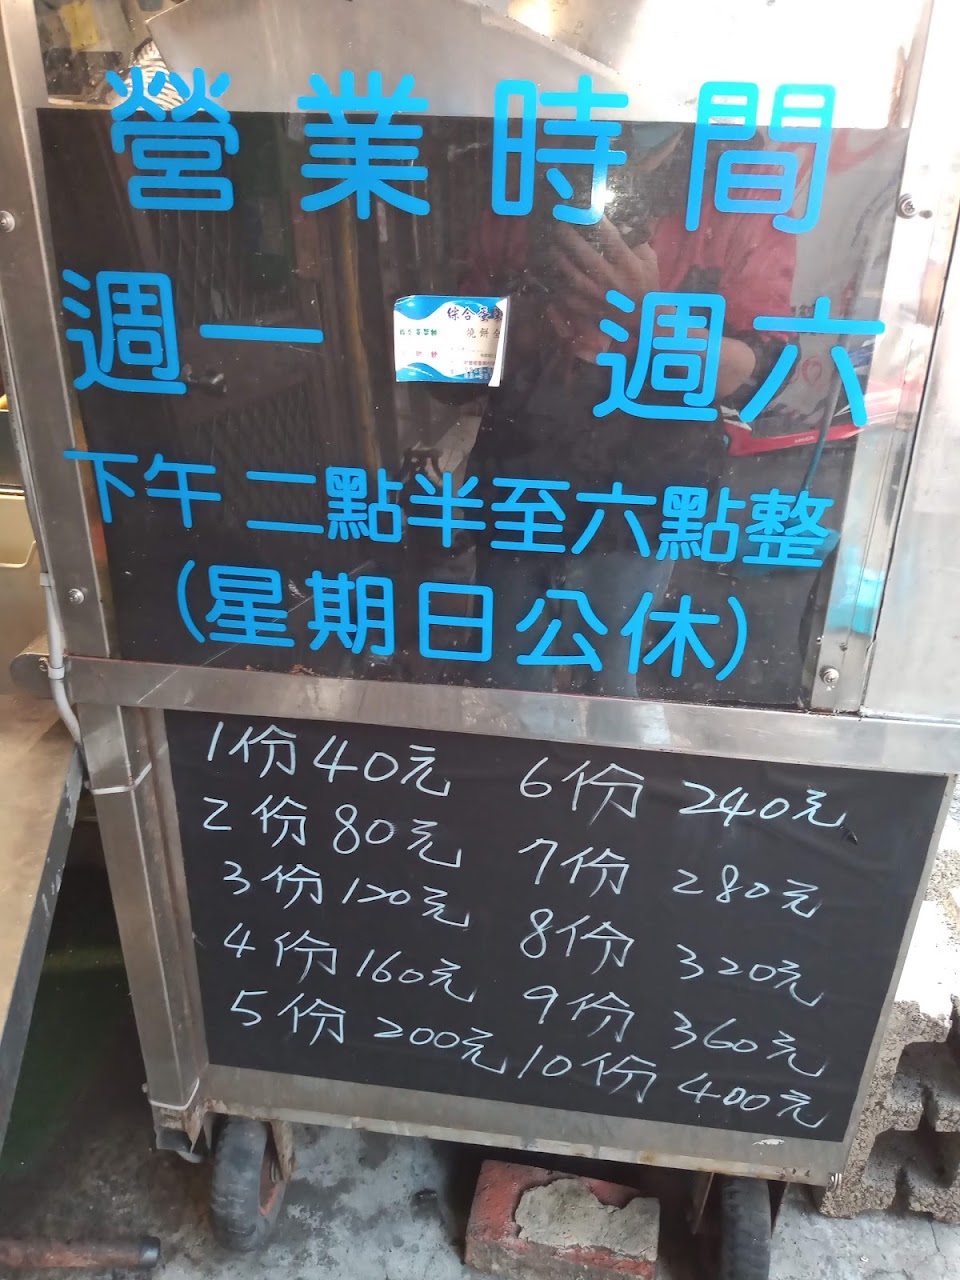 營業時間
週一 週六
綜合蛋
燒餅
下午二點半至六點整
(星期日公休)
1份40元 6份 240元
2份80元 7份 280元
3份120元 8份 320元
4份160元 9份 360元
5份 200元 10份 400元